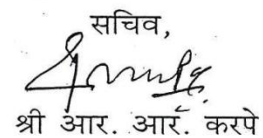 सचिव,
श्री आर. आर. करपे